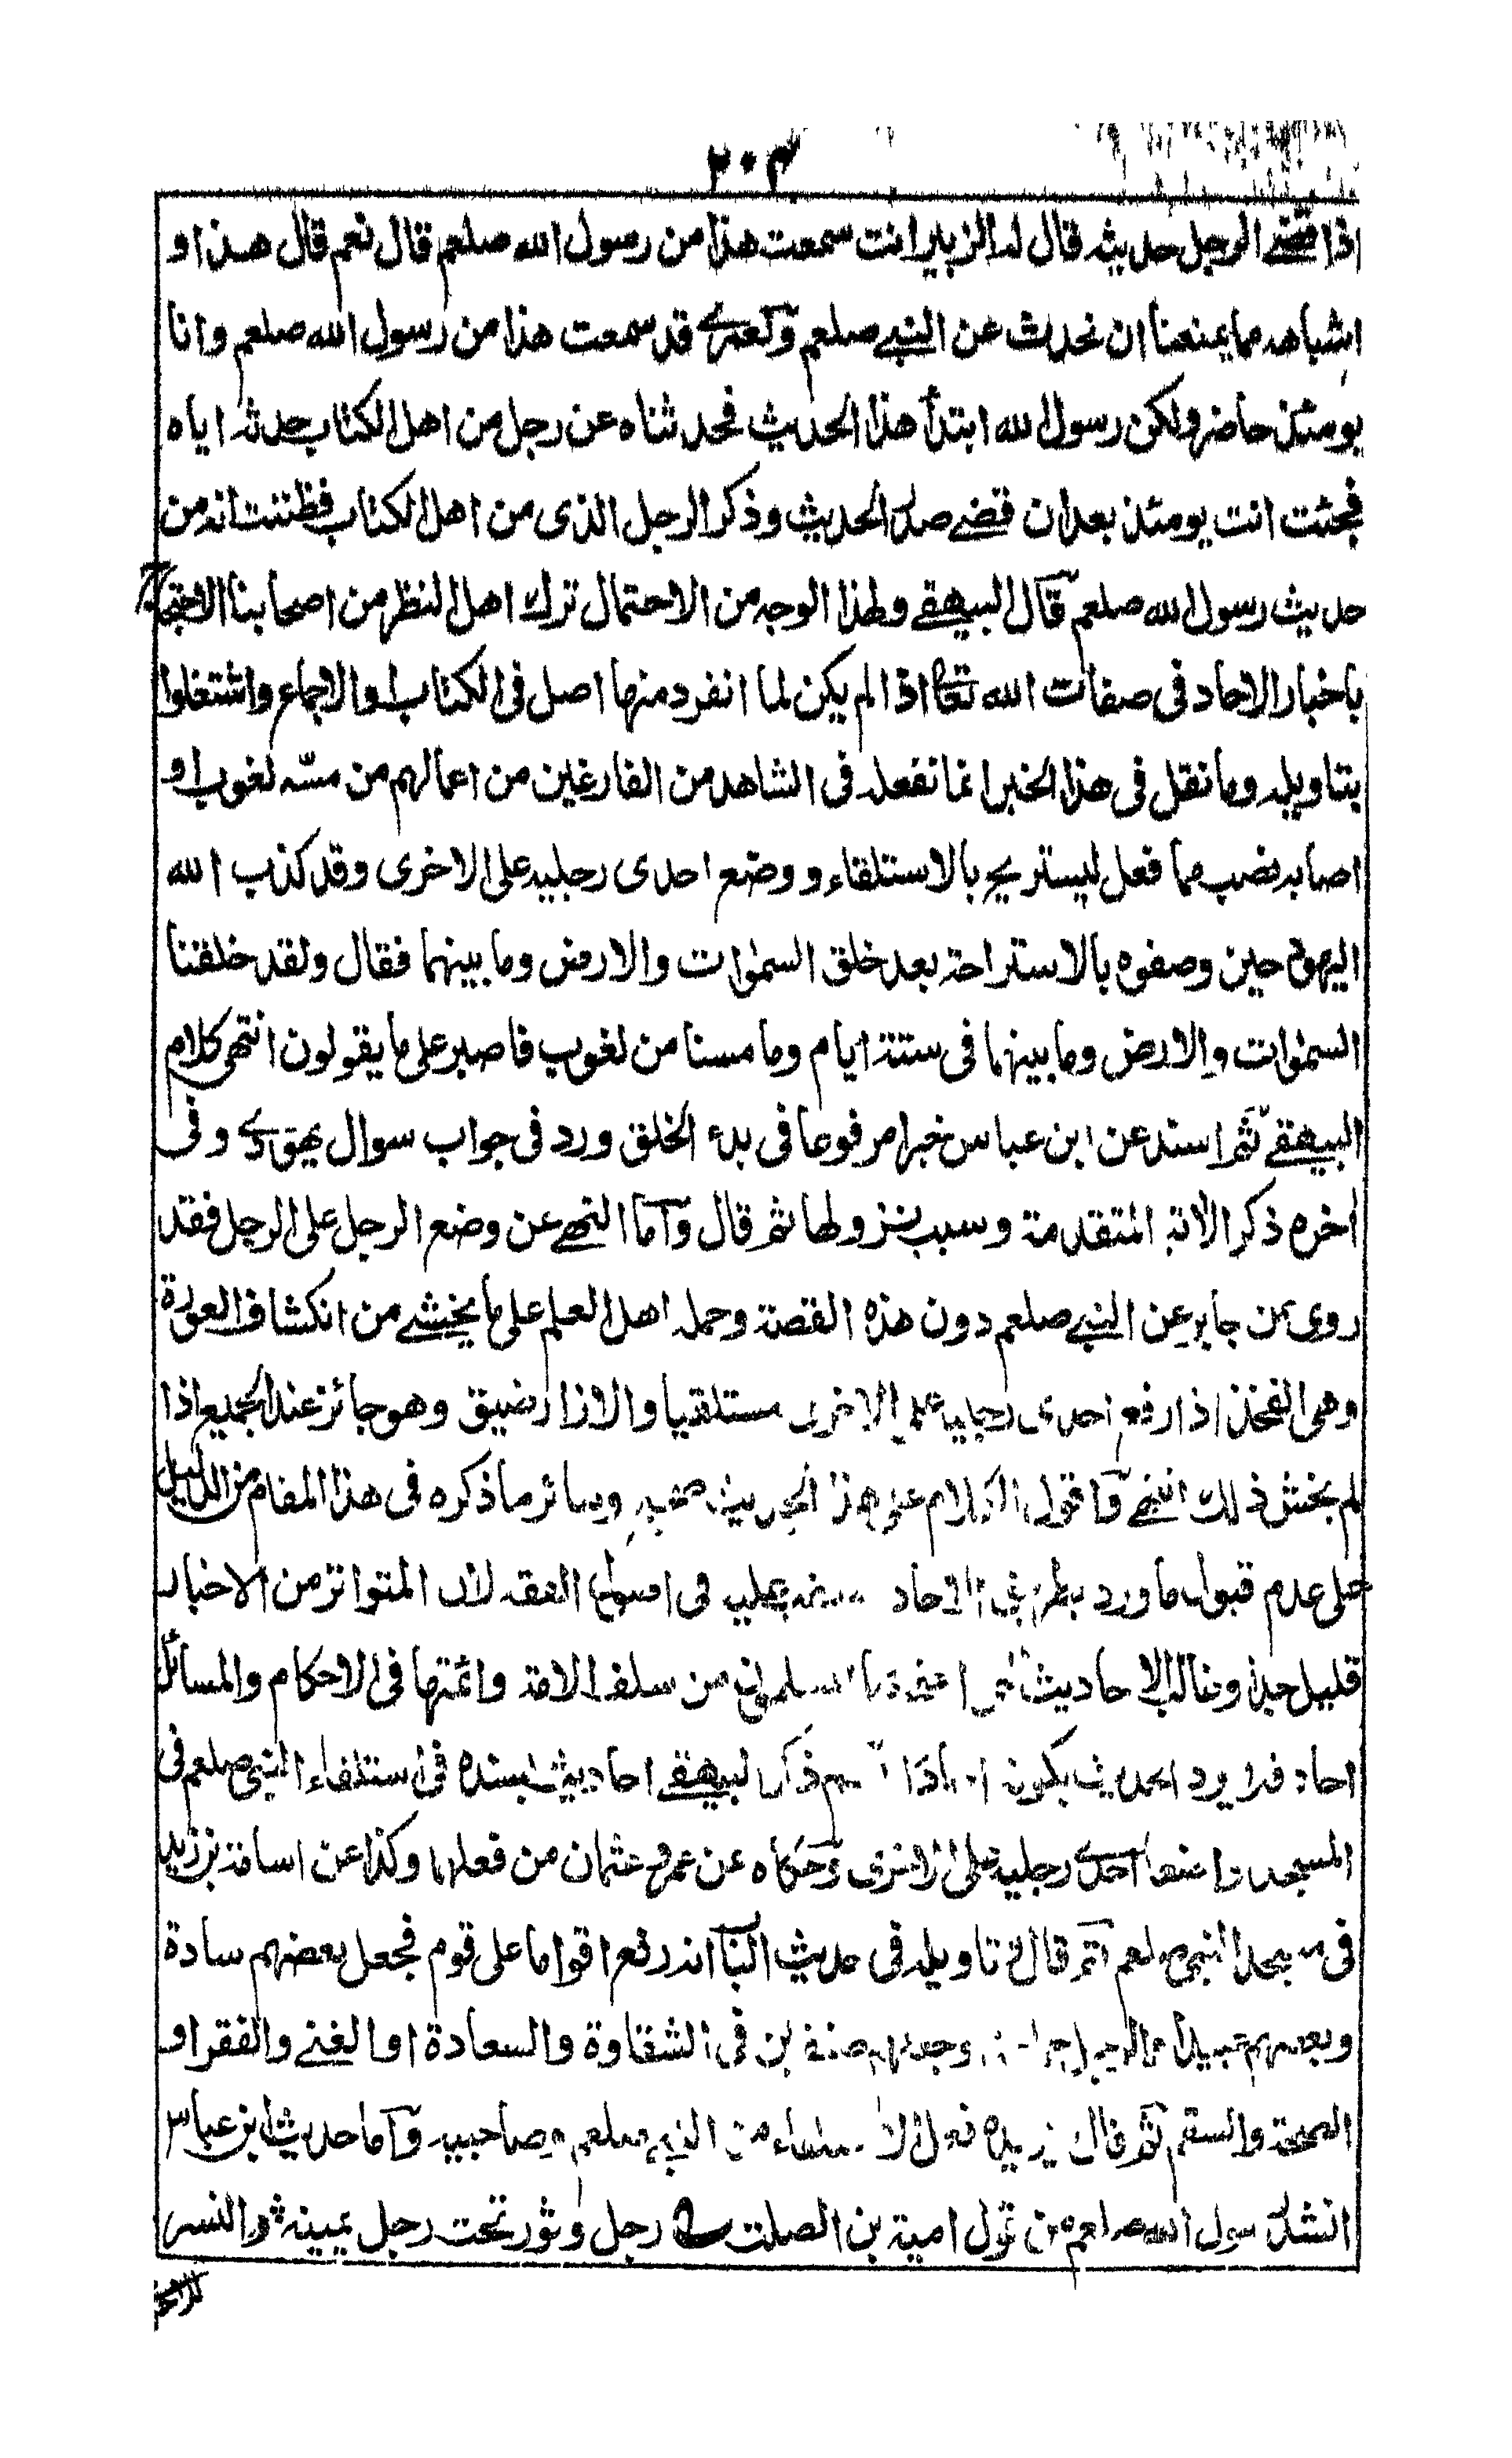 ٢٠٣
اذا قضے الرجل حديثه قال له الزبير انت سمعت هذا من رسول الله صلعم قال نعم قال هذا و
اشباهه مما يمنعنا ان نحدث عن النبے صلعم ولعمرے قد سمعت هذا من رسول الله صلعم وانا
يومئذ حاضر ولكن رسول الله ابتدأ هذا الحديث فحدثناه عن رجل من اهل الكتاب حدثه اياه
فجئت انت يومئذ بعد ان قضے صدر الحديث وذكر الرجل الذى من اهل الكتاب فظننت انه من
حديث رسول الله صلعم قال البيهقے ولهذا الوجه من الاحتمال ترك اهل النظر من اصحابنا الاحتجاج
باخبار الاحاد فى صفات الله تعا اذا لم يكن لما انفرد منها اصل فى الكتاب او الاجماع واشتغلوا
بتاويله وما نقل فى هذا الخبر انما نفعله فى الشاهد من الفارغين من اعمالهم من مسّه لغوب او
اصابه نصب مما فعل ليستريح بالاستلقاء ووضع احدى رجليه على الاخرى وقد كذب الله
اليهود حين وصفوه بالاستراحة بعد خلق السمٰوات والارض وما بينهما فقال ولقد خلقننا
السمٰوات والارض وما بينهما فى ستة ايام وما مسنا من لغوب فاصبر على ما يقولون انتهى كلام
البيهقے ثم اسند عن ابن عباس خبرا مرفوعا فى بدء الخلق ورد فى جواب سوال يهودے وفى
اخره ذكر الاية المتقدمة وسبب نزولها ثم قال واما النهے عن وضع الرجل على الرجل فقد
روى عن جابر عن النبے صلعم دون هذه القصة وحمله اهل العلم على ما يخشے من انكشاف العورة
وهى الفخذ اذا رفع احدى رجليه على الاخرى مستلقيا والازار ضيق وهو جائز عند الجميع اذا
لم يخش ذلك انتهے واقول الكلام على هذا الحديث صحيح وسائر ما ذكره فى هذا المقام من الدليل
على عدم قبول ما ورد بطريق الاحاد عليه فى اصول الفقه لان المتواتر من الاخبار
قليل جدا وغالب الاحاديث من سلف الامة وائمتها فى الاحكام والمسائل
احاد فلا يرد الحديث بكونه احادا ثم ذكر البيهقے احاديث بسنده فى استلقاء النبى صلعم فى
المسجد واضعا احدے رجليه على الاخرى وحكاه عن عمر وعثمان من فعلهما وكذا عن اسامة بن زيد
فى مسجد النبى صلعم ثم قال فى تاويله فى حديث البنا انه رفع اقواما على قوم فجعل بعضهم سادة
وبعضهم عبيدا وجعلهم صنفين فى الشقاوة والسعادة او الغنے والفقر او
الصحة والسقم ثم قال من النبے صلعم وصاحبيه واما حديث ابن عباس
انشد رسول الله صلعم من قول امية بن الصلت رجل وثور تحت رجل يمينه والنسر
للاخرى